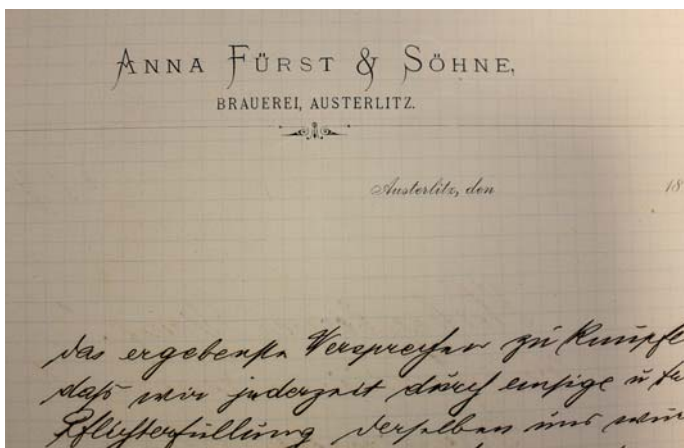 ANNA FÜRST & SÖHNE,
BRAUEREI, AUSTERLITZ.
Austerlitz, den 18
das ergebenste Versprechen zu knüpfe
daß wir jederzeit durch emsige u
Pflichterfüllung derselben uns wür